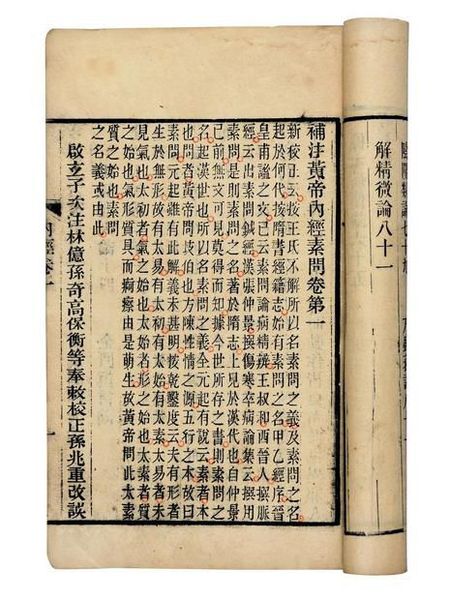 解精微論八十一
補注黃帝內經素問卷第一
新校正云按王氏不解所以名素問之義及素問之名
起於何代按隋書經籍志始有素問之名甲乙經序晉
皇甫謐之文已云素問論病精辨王叔和西晉人撰脈
經云出素問鍼經漢張仲景撰傷寒卒病論集云撰用
素問是則素問之名著於隋志上見於漢代也自仲景
已前無文可見莫得而知據今世所存之書則素問之
名起漢世也所以名素問之義全元起有說云素者本
也問者黃帝問岐伯也方陳性情之源五行之本故曰
素問元起雖有此解義未甚明按乾鑿度云夫有形者
生於無形故有太易有太初有太始有太素太易者未
見氣也太初者氣之始也太始者形之始也太素者質
之始也氣形質具而痾瘵由是萌生故黃帝問此太素
質之始也素問
之名義或由此
啟玄子次注林億孫奇高保衡等奉敕校正孫兆重改誤
內經卷一